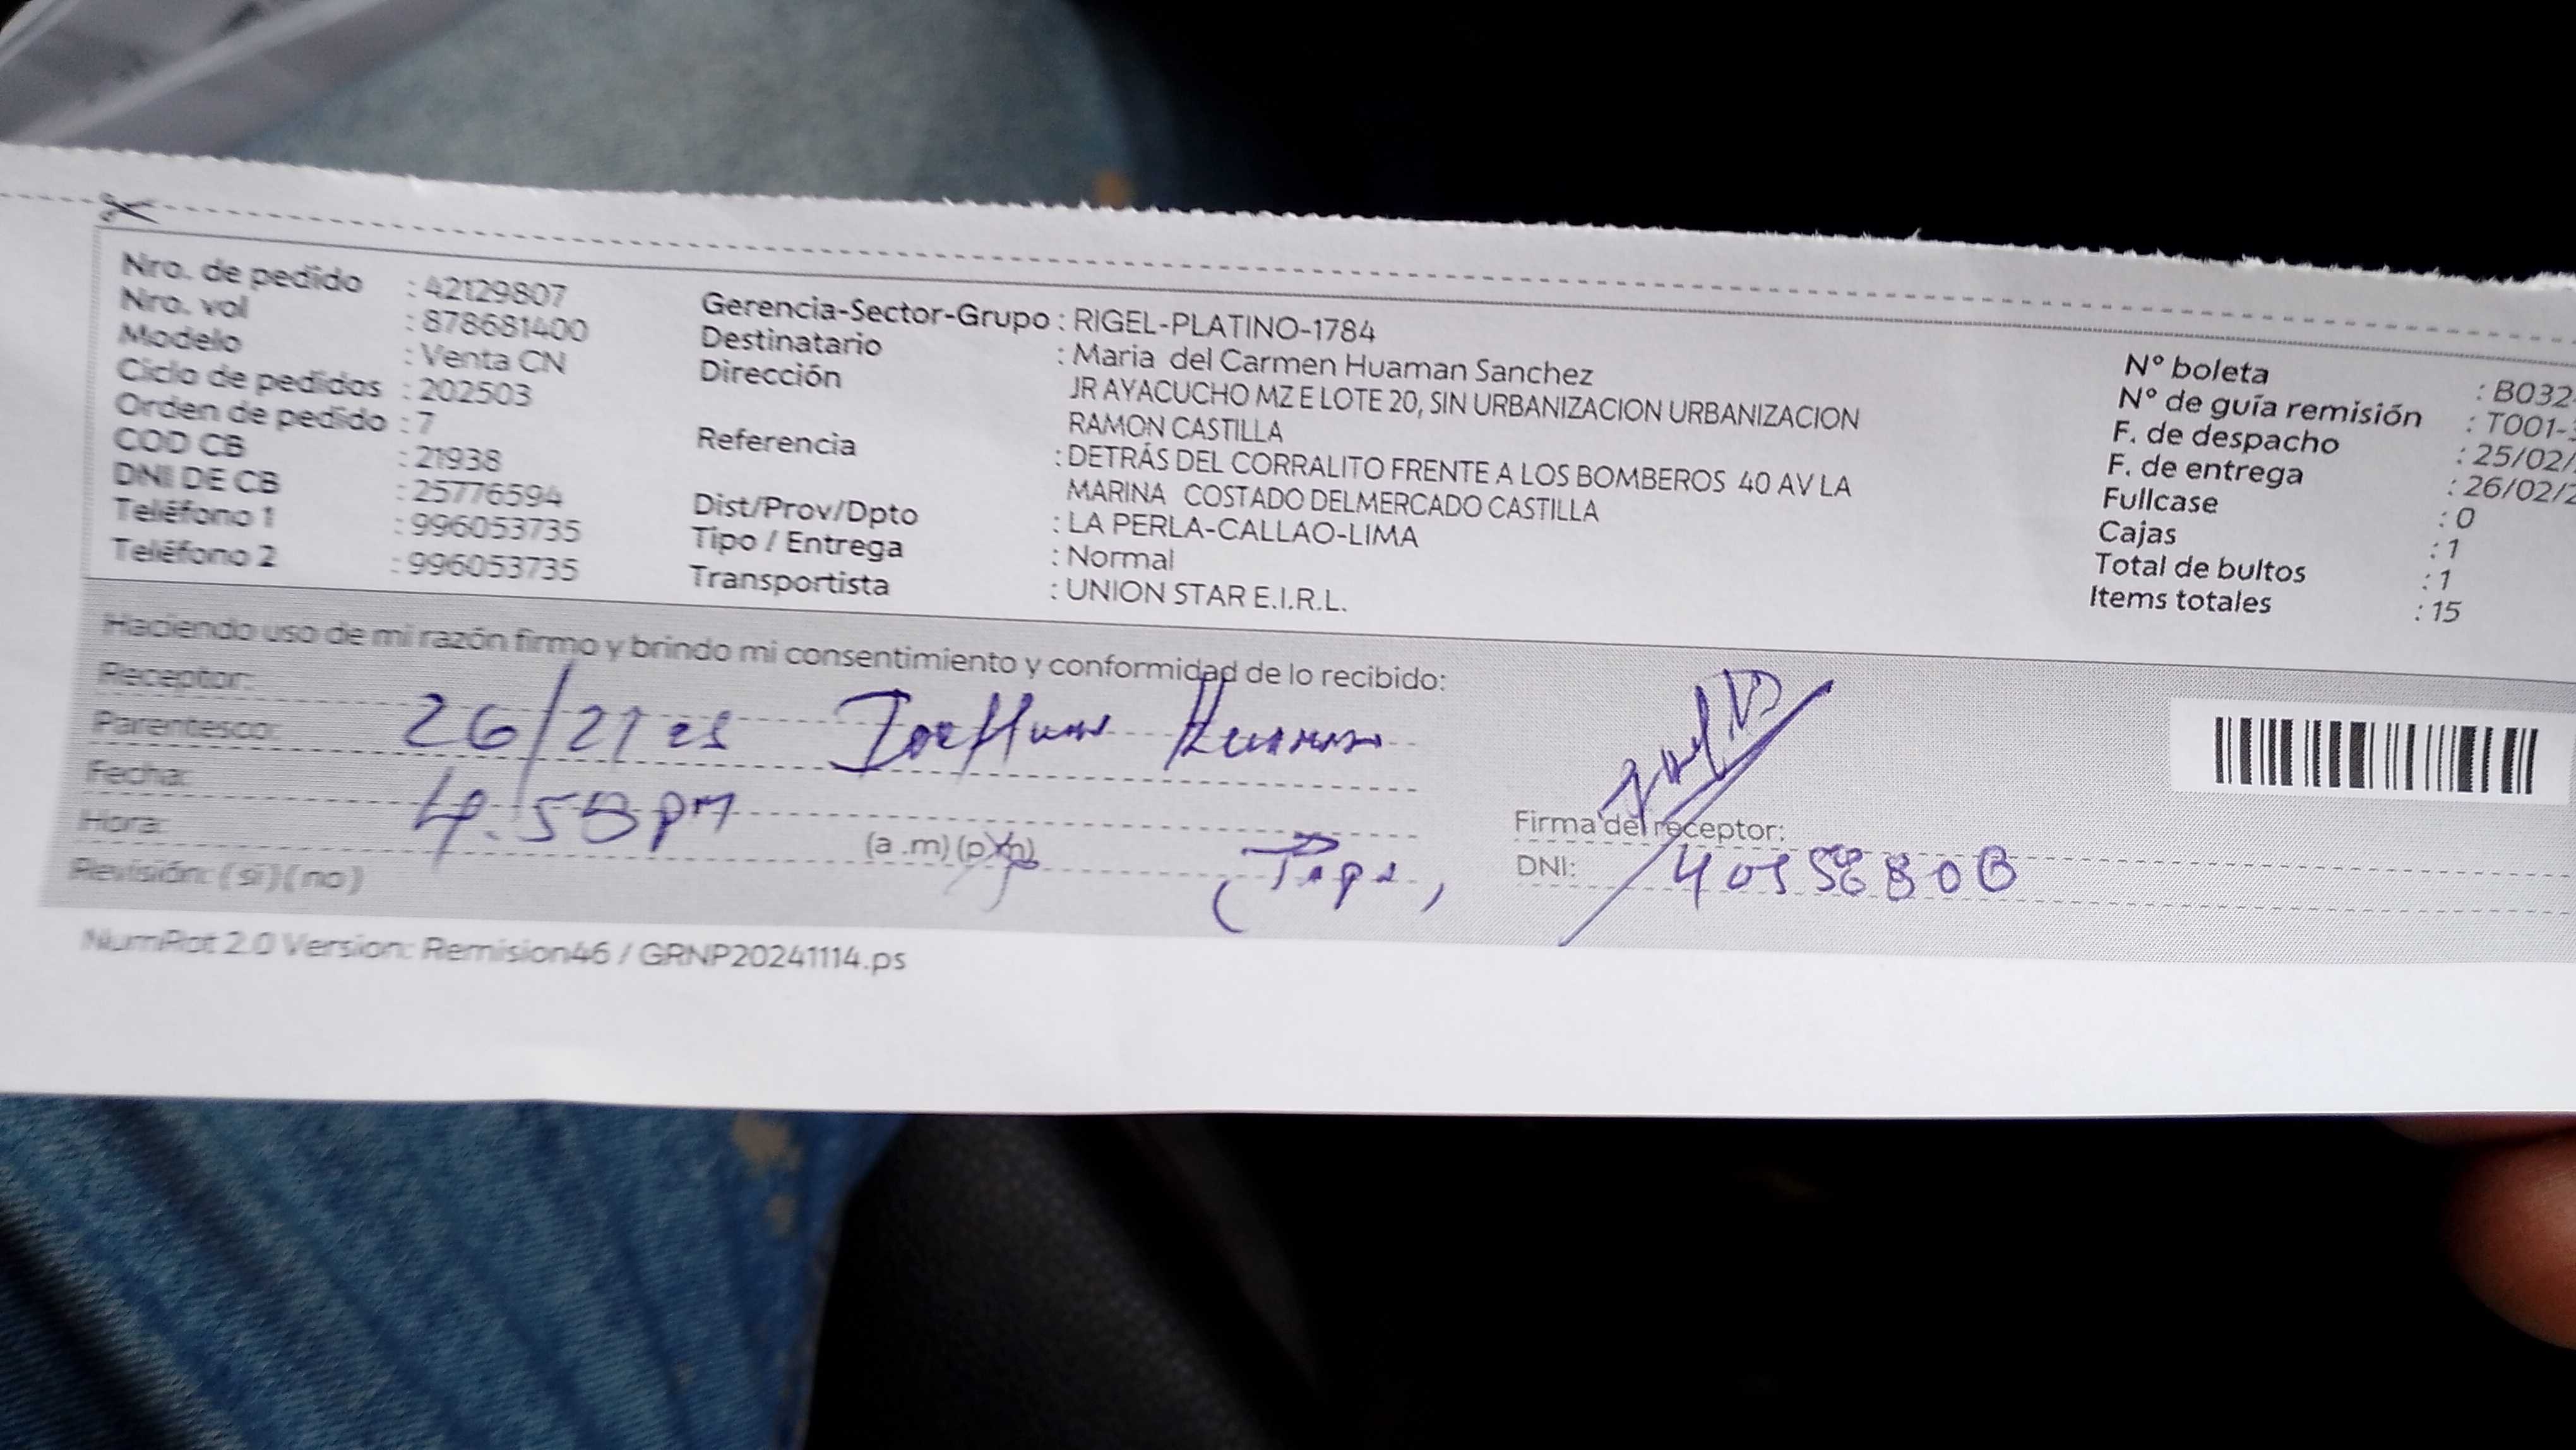 Nro. de pedido : 42129807
Nro. vol : 878681400
Modelo : Venta CN
Ciclo de pedidos : 202503
Orden de pedido : 7
COD CB : 21938
DNI DE CB : 25776594
Teléfono 1 : 996053735
Teléfono 2 : 996053735
Gerencia-Sector-Grupo : RIGEL-PLATINO-1784
Destinatario : Maria del Carmen Huaman Sanchez
Dirección JR AYACUCHO MZ E LOTE 20, SIN URBANIZACION URBANIZACION
RAMON CASTILLA
Referencia : DETRÁS DEL CORRALITO FRENTE A LOS BOMBEROS 40 AV LA
MARINA COSTADO DELMERCADO CASTILLA
Dist/Prov/Dpto : LA PERLA-CALLAO-LIMA
Tipo / Entrega : Normal
Transportista : UNION STAR E.I.R.L.
N° boleta : B032
N° de guía remisión : T001-
F. de despacho : 25/02/
F. de entrega : 26/02/2
Fullcase : 0
Cajas : 1
Total de bultos : 1
Items totales : 15
Haciendo uso de mi razón firmo y brindo mi consentimiento y conformidad de lo recibido:
Receptor:
Parentesco:
Fecha:
Hora: 4.58 pm (a .m) (p.m)
Revisión: ( si ) ( no )
Firma del receptor:
DNI:
NumRot 2.0 Version: Remision46 / GRNP20241114.ps